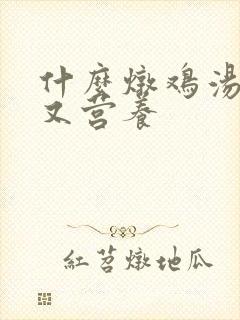 什麼燉鸡湯
又营养
紅苕燉地瓜